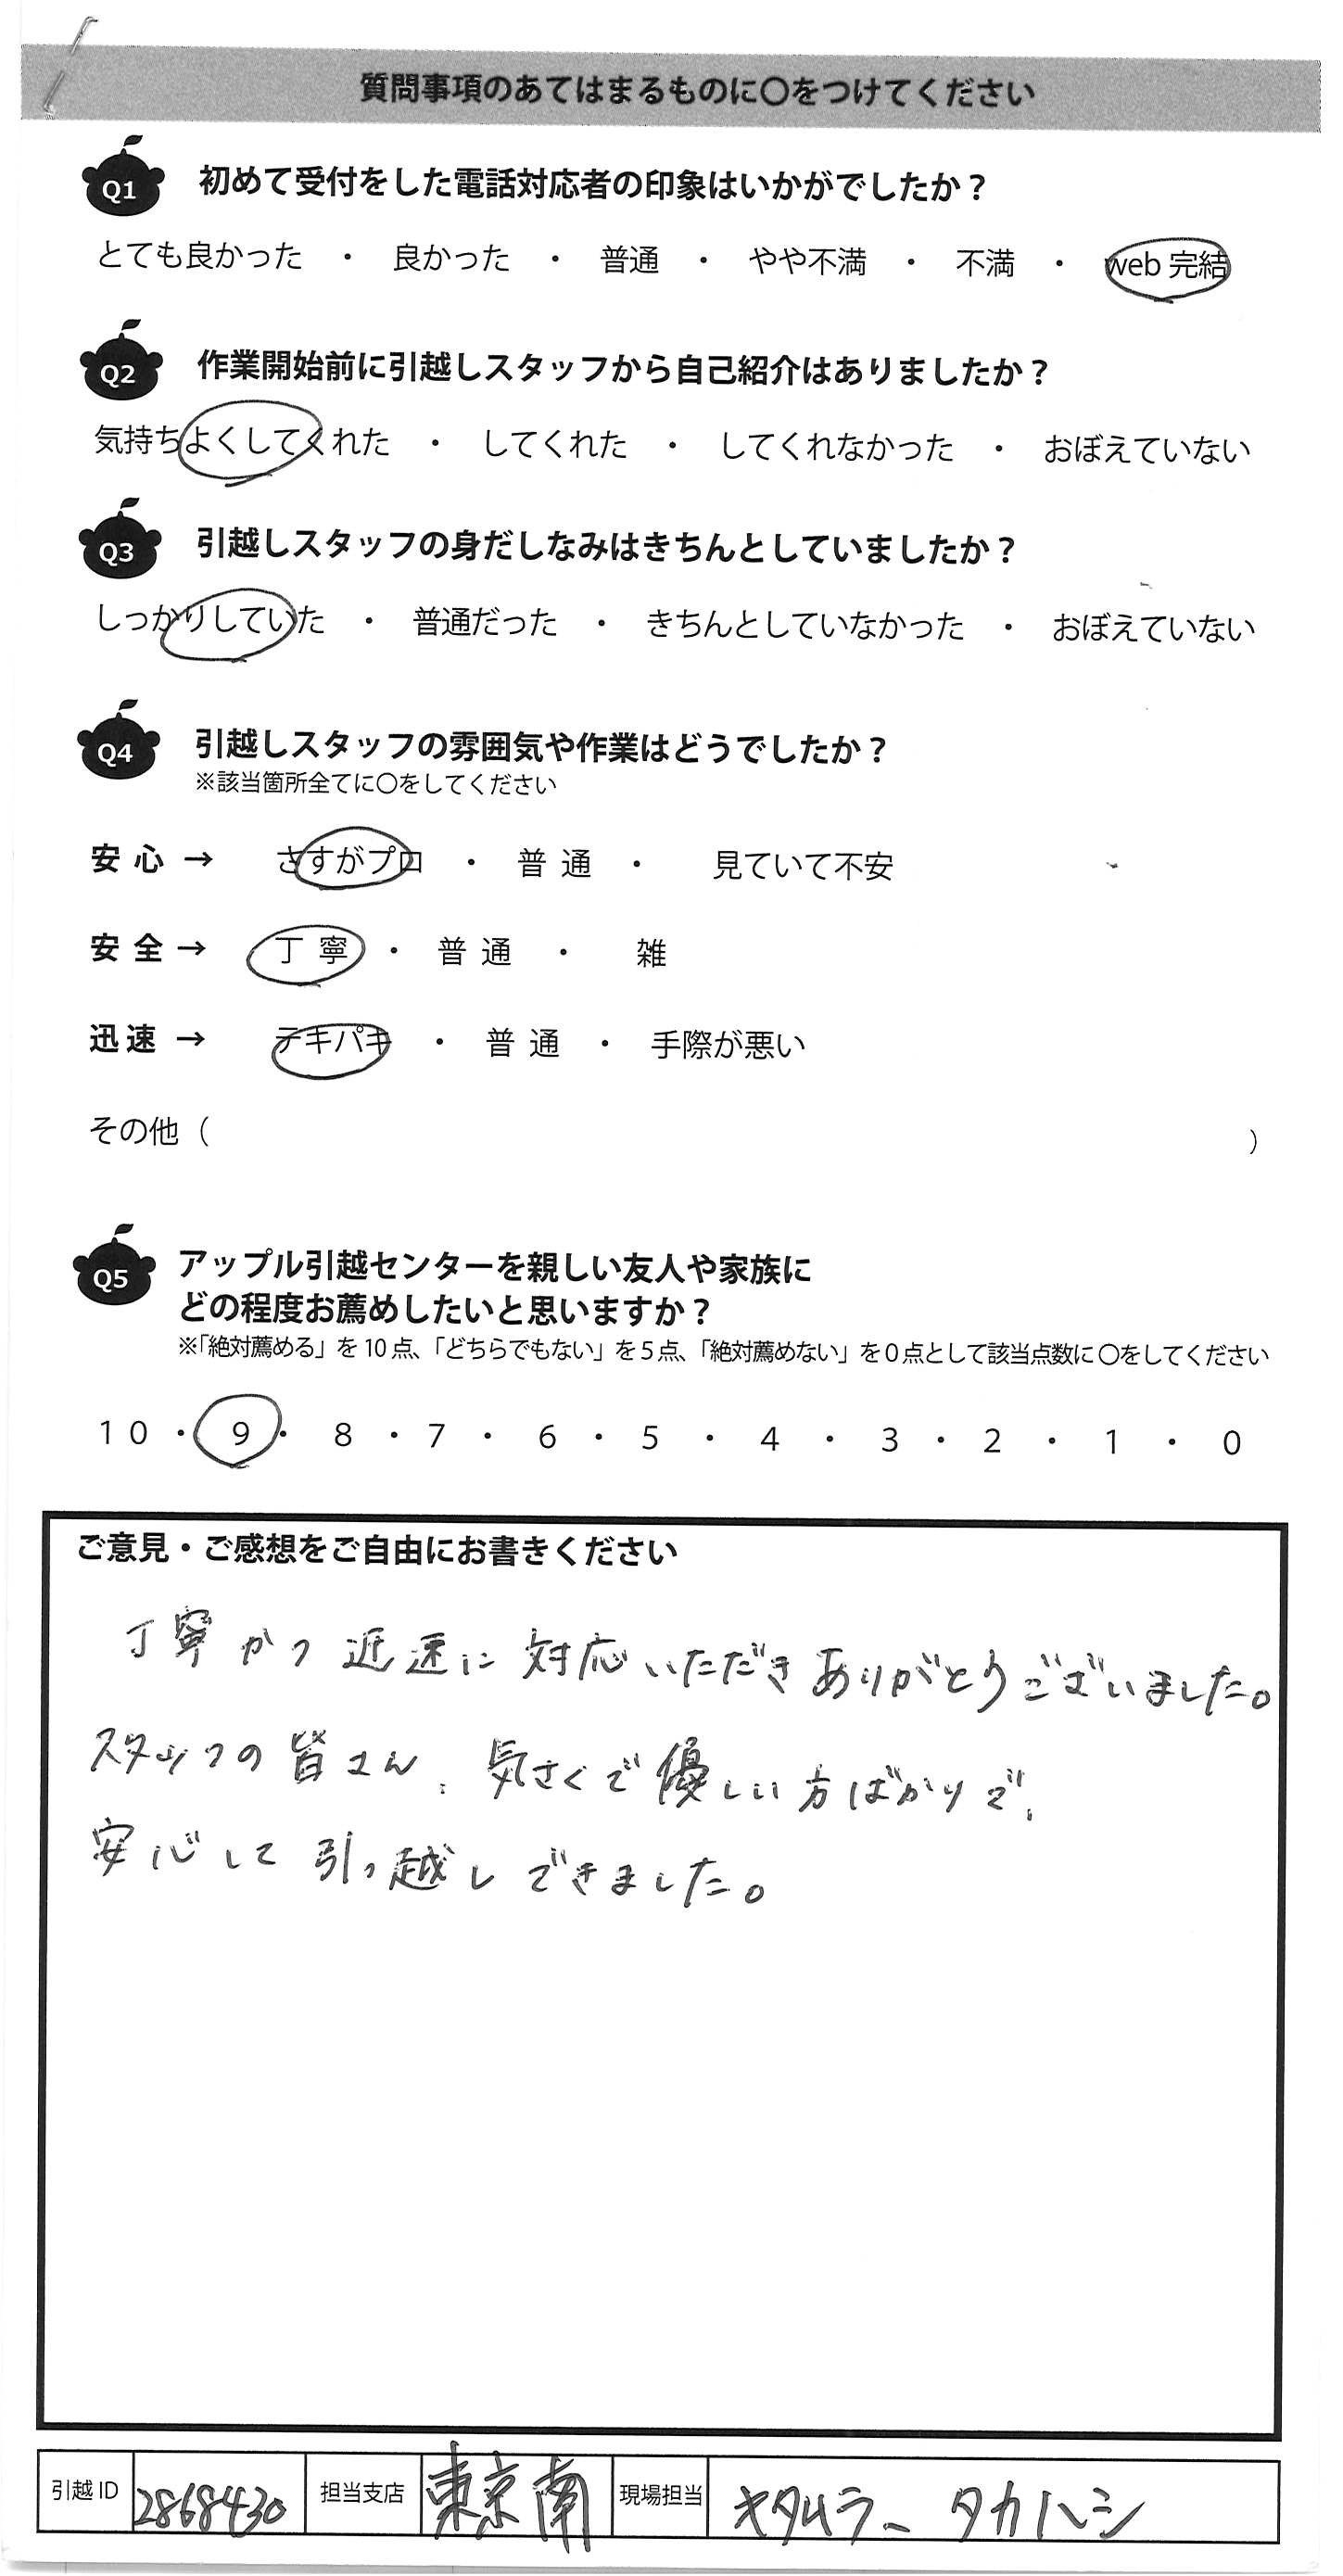 質問事項のあてはまるものに〇をつけてください
Q1 初めて受付をした電話対応者の印象はいかがでしたか？
とても良かった ・ 良かった ・ 普通 ・ やや不満 ・ 不満 ・ web 完結
Q2 作業開始前に引越しスタッフから自己紹介はありましたか？
気持ちよくしてくれた ・ してくれた ・ してくれなかった ・ おぼえていない
Q3 引越しスタッフの身だしなみはきちんとしていましたか？
しっかりしていた ・ 普通だった ・ きちんとしていなかった ・ おぼえていない
Q4 引越しスタッフの雰囲気や作業はどうでしたか？
※該当箇所全てに〇をしてください
安 心 → さすがプロ ・ 普 通 ・ 見ていて不安
安 全 → 丁 寧 ・ 普 通 ・ 雑
迅 速 → テキパキ ・ 普 通 ・ 手際が悪い
その他（ ）
Q5 アップル引越センターを親しい友人や家族に
どの程度お薦めしたいと思いますか？
※「絶対薦める」を 10 点、「どちらでもない」を 5 点、「絶対薦めない」を 0 点として該当点数に 〇をしてください
10 ・ 9 ・ 8 ・ 7 ・ 6 ・ 5 ・ 4 ・ 3 ・ 2 ・ 1 ・ 0
ご意見・ご感想をご自由にお書きください
丁寧かつ迅速に対応いただきありがとうございました。
スタッフの皆さん、気さくで優しい方ばかりで、
安心して引っ越しできました。
引越 ID 2868430 担当支店 東京南 現場担当 キタムラ、タカハシ